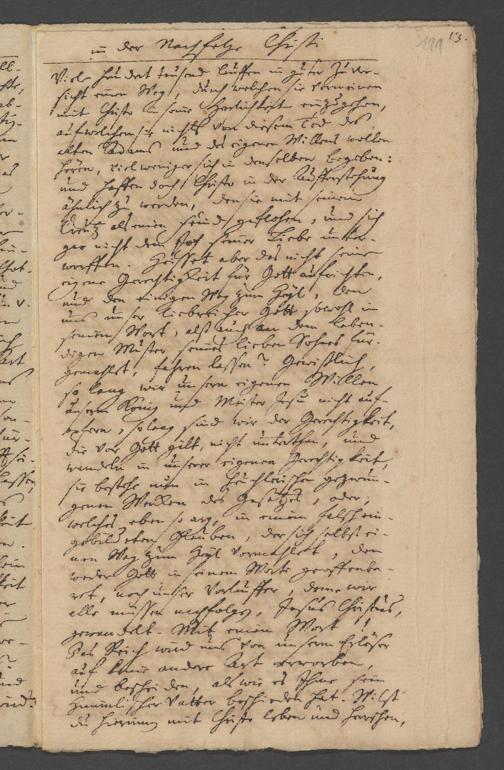 in der Nachfolge Christi
199 13.
Viele hundert tausend lauffen in guter Zuver-
sicht einen Weg, durch welchen sie vermeinen
mit Christo in seine Herrlichkeit einzugehen,
auf welchem sie nichts von diesem Tod des
alten Adams und des eigenen Willens wollen
hören, viel weniger sich in denselben begeben:
und hoffen doch Christo in der Aufferstehung
ähnlich zu werden, den sie mit seinem
Creutz als einen Feind geflohen, und sich
gar nicht dem Joch seiner Liebe unter-
werffen. Heisset aber das nicht seine
eigene Gerechtigkeit für Gott aufrichten,
und den einigen Weg zum Heyl, den
uns unser liebreicher Gott sowohl in
seinem Wort, als auch an dem leben-
digen Muster seines lieben Sohnes für-
gemahlet, fahren lassen? Gewißlich,
so lang wir unsern eigenen Willen
unserm König und Meister Jesu nicht auf-
opfern, so lang sind wir der Gerechtigkeit,
die vor Gott gilt, nicht unterthan, und
wandeln in unserer eigenen Gerechtigkeit,
sie bestehe nun in heuchlerischen gezwun-
genen Wercken des Gesetzes, oder,
welches eben so arg, in einem falschein-
gebildeten Glauben, der sich selbst ei-
nen Weg zum Heyl vormahlet, den
weder Gott in seinem Worte geoffenba-
ret, noch unser Vorläuffer, deme wir
alle müssen nachfolgen, Jesus Christus,
gewandelt. Mit einem Wort!
Das Reich wird uns von unserm Erlöser
auf keine andere Art erworben,
und bescheiden, als wie es Ihme sein
himmlischer Vatter bescheiden hat. Wilst
du hierum mit Christo leben und herrschen,